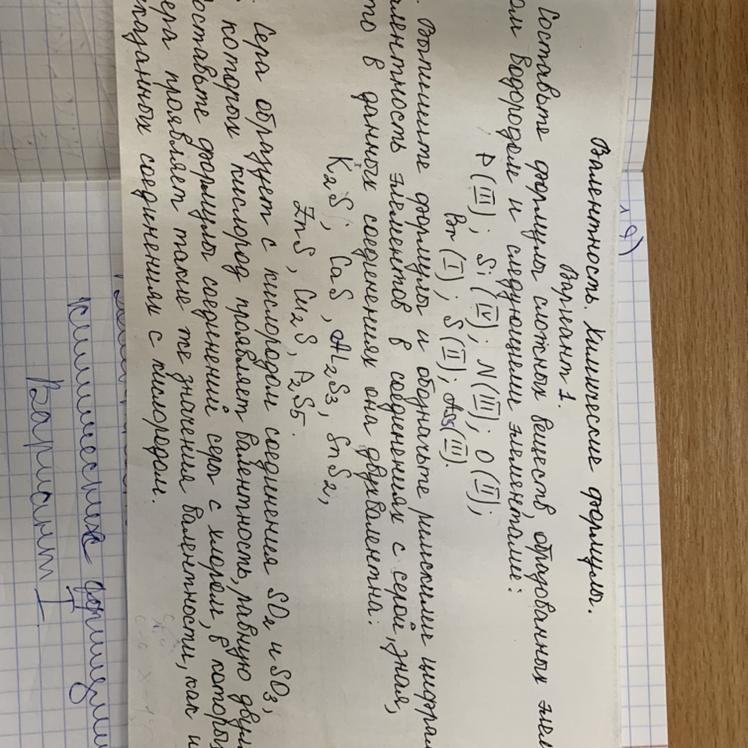 Валентность. Химические формулы.
Вариант 1.
Составьте формулы сложных веществ, образованных
ом водородом и следующими элементами:
P(III); Si(IV); N(III); O(II);
Br(I); S(II); As(III).
Выпишите формулы и обозначьте римскими цифрам
алентность элементов в соединениях с серой, зная,
то в данных соединениях она двухвалентна:
K2S; CaS, Al2S3, SnS2,
ZnS, Cu2S, P2S5.
Сера образует с кислородом соединения SO2 и SO3,
которых кислород проявляет валентность, равную двум
оставьте формулы соединений серы с хлором, в которы
ера проявляет такие же значения валентности, как и
казанных соединениях с кислородом.
химических формулам
Вариант I